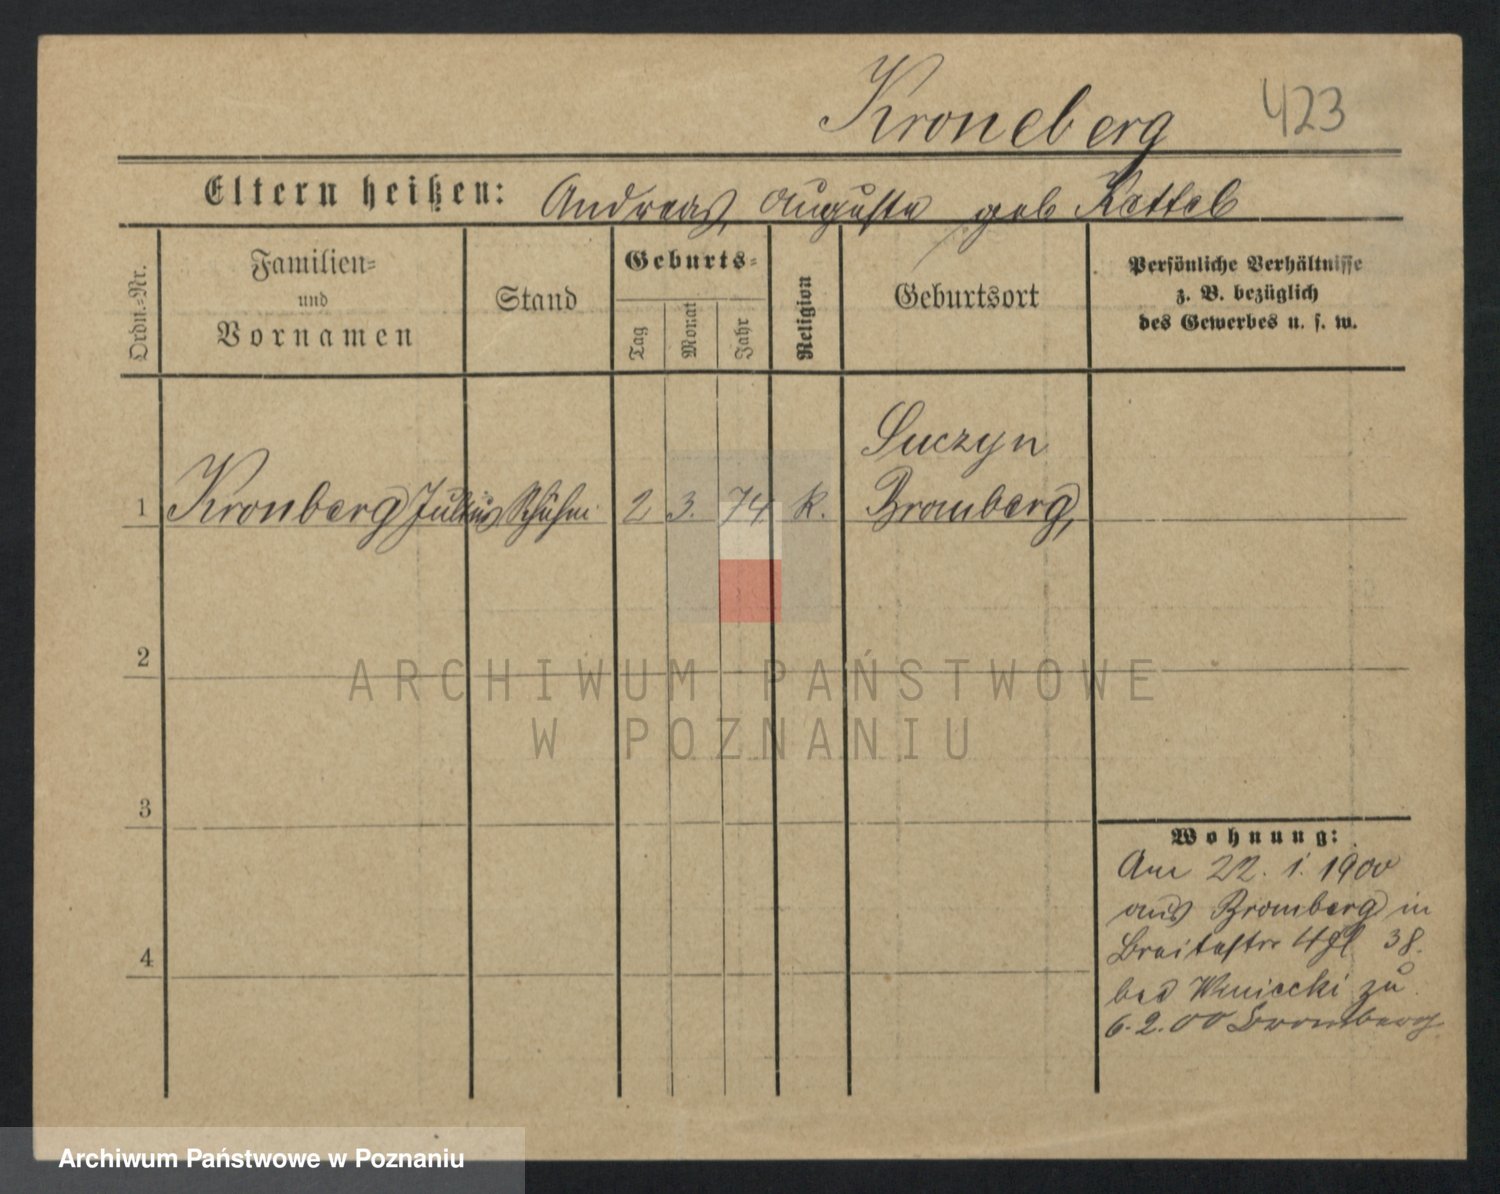 Kroneberg 423
Eltern heißen: Andreas, Auguste geb Kettel
Ordn.-Nr.
Familien-
und
Vornamen
Stand
Geburts-
Tag
Monat
Jahr
Religion
Geburtsort
Persönliche Verhältnisse
z. B. bezüglich
des Gewerbes u. s. w.
Suczyn
1 Kronberg Julius Schuhm. 2 3. 74 k. Bromberg,
2
ARCHIWUM PAŃSTWOWE
W POZNANIU
3
Wohnung:
Am 22. 1. 1900
aus Bromberg in
Breitestr 38.
bei zu
6. 2. 00 Bromberg
4
Archiwum Państwowe w Poznaniu